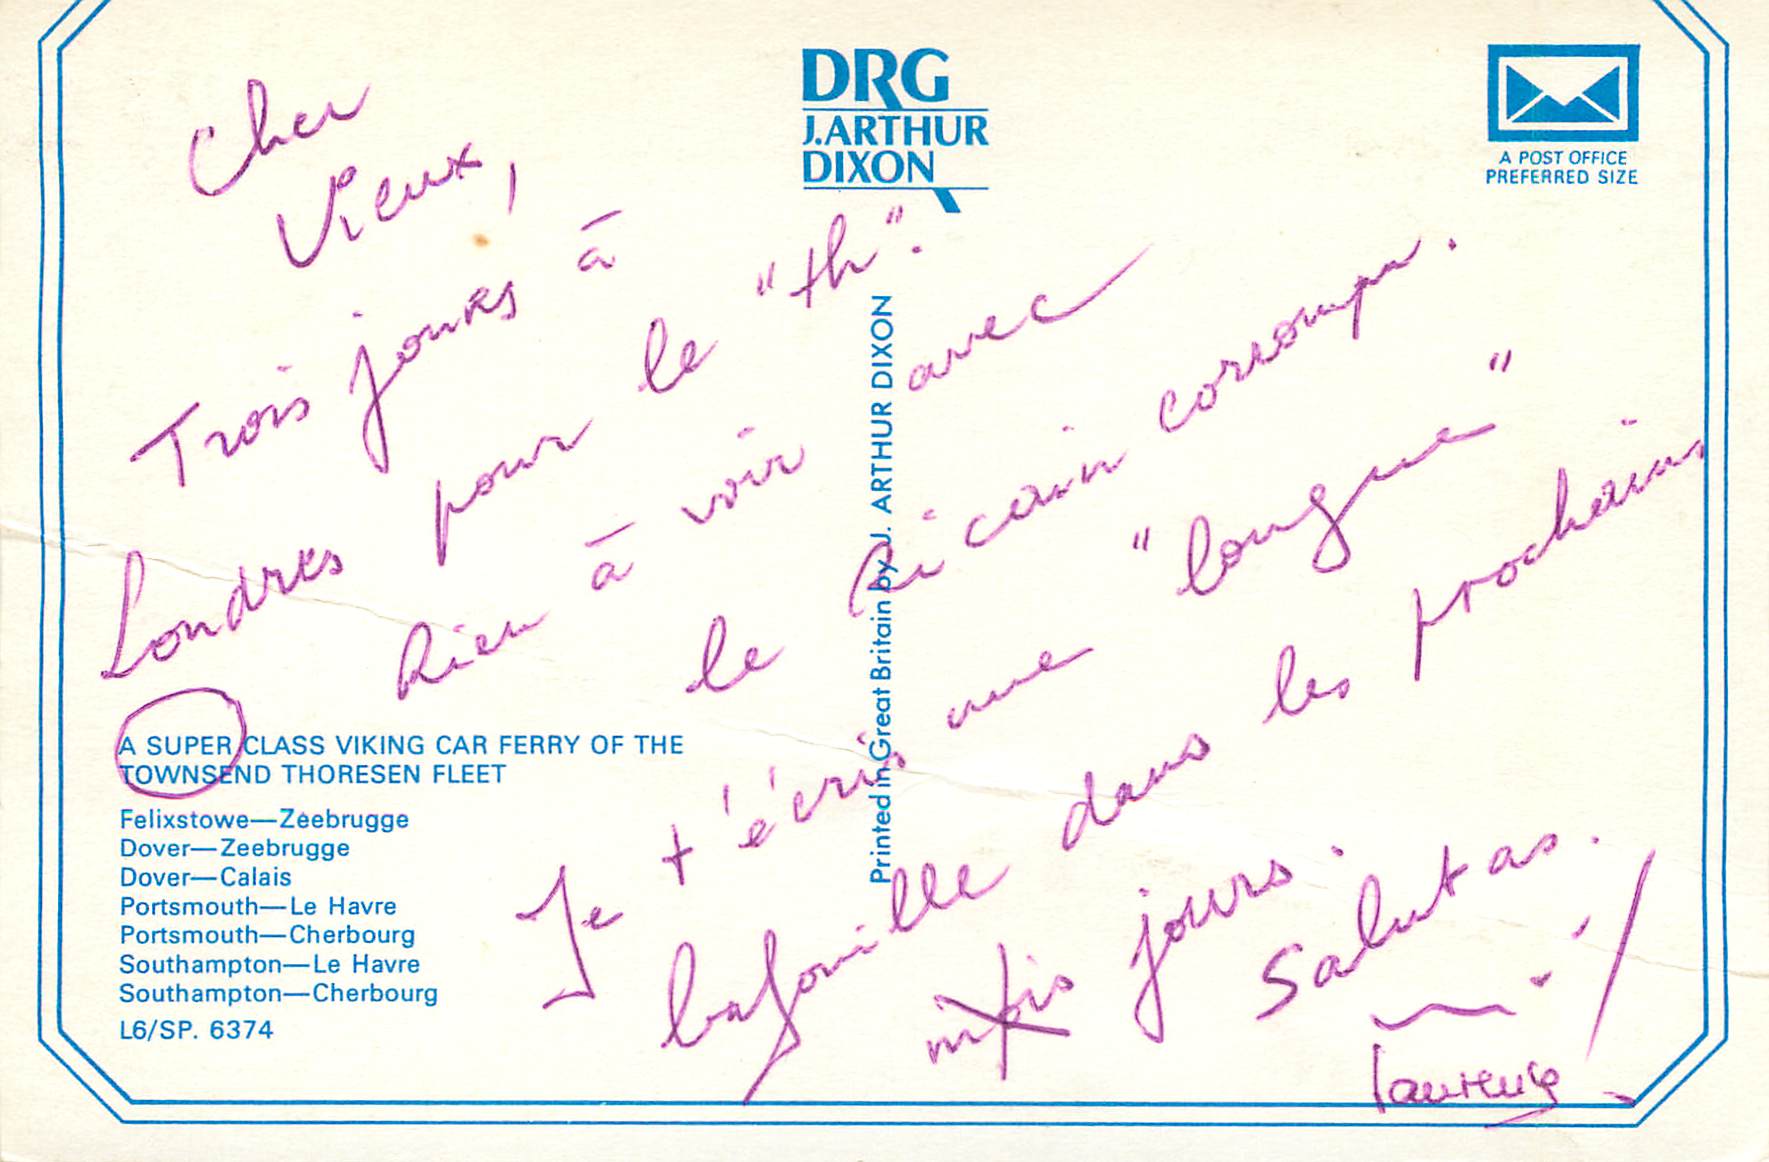 DRG
J. ARTHUR
DIXON
A POST OFFICE
PREFERRED SIZE
Cher
Vieux,
Trois jours à
Londres pour le "th".
Rien à voir avec
le Ricain corrompu.
Je t'écris une "longue"
bafouille dans les prochains
jours.
Salutas.
!
Printed in Great Britain by J. ARTHUR DIXON
A SUPER CLASS VIKING CAR FERRY OF THE
TOWNSEND THORESEN FLEET
Felixstowe—Zeebrugge
Dover—Zeebrugge
Dover—Calais
Portsmouth—Le Havre
Portsmouth—Cherbourg
Southampton—Le Havre
Southampton—Cherbourg
L6/SP. 6374